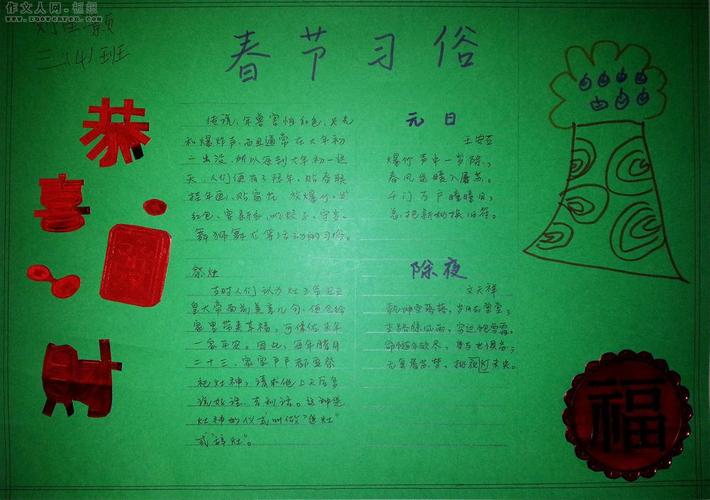 作文人网·祖组
www.zuowenren.com
三、4、班
春节习俗
恭
喜
福
传说，年兽害怕红色、火光
和爆炸声，而且通常在大年初
一出没，所以每到大年初一这
天，人们便有了拜年、贴春联
挂年画、贴窗花、放爆竹、发
红包、穿新衣、吃饺子、守岁、
舞狮舞龙等活动的习俗。
祭灶
古时人们认为灶王爷在玉
皇大帝面前美言几句，便会给
家里带来幸福，可保佑来年
一家平安。因此，每年腊月
二十三，家家户户都要祭
祀灶神，请求他上天后多
说好话、吉利话。这种送
灶神的仪式叫做“送灶”
或“辞灶”。
元日
王安石
爆竹声中一岁除，
春风送暖入屠苏。
千门万户曈曈日，
总把新桃换旧符。
除夜
文天祥
乾坤空落落，岁月去堂堂；
末路惊风雨，穷边饱雪霜。
命随年欲尽，身与世俱忘；
无复屠苏梦，挑灯夜未央。